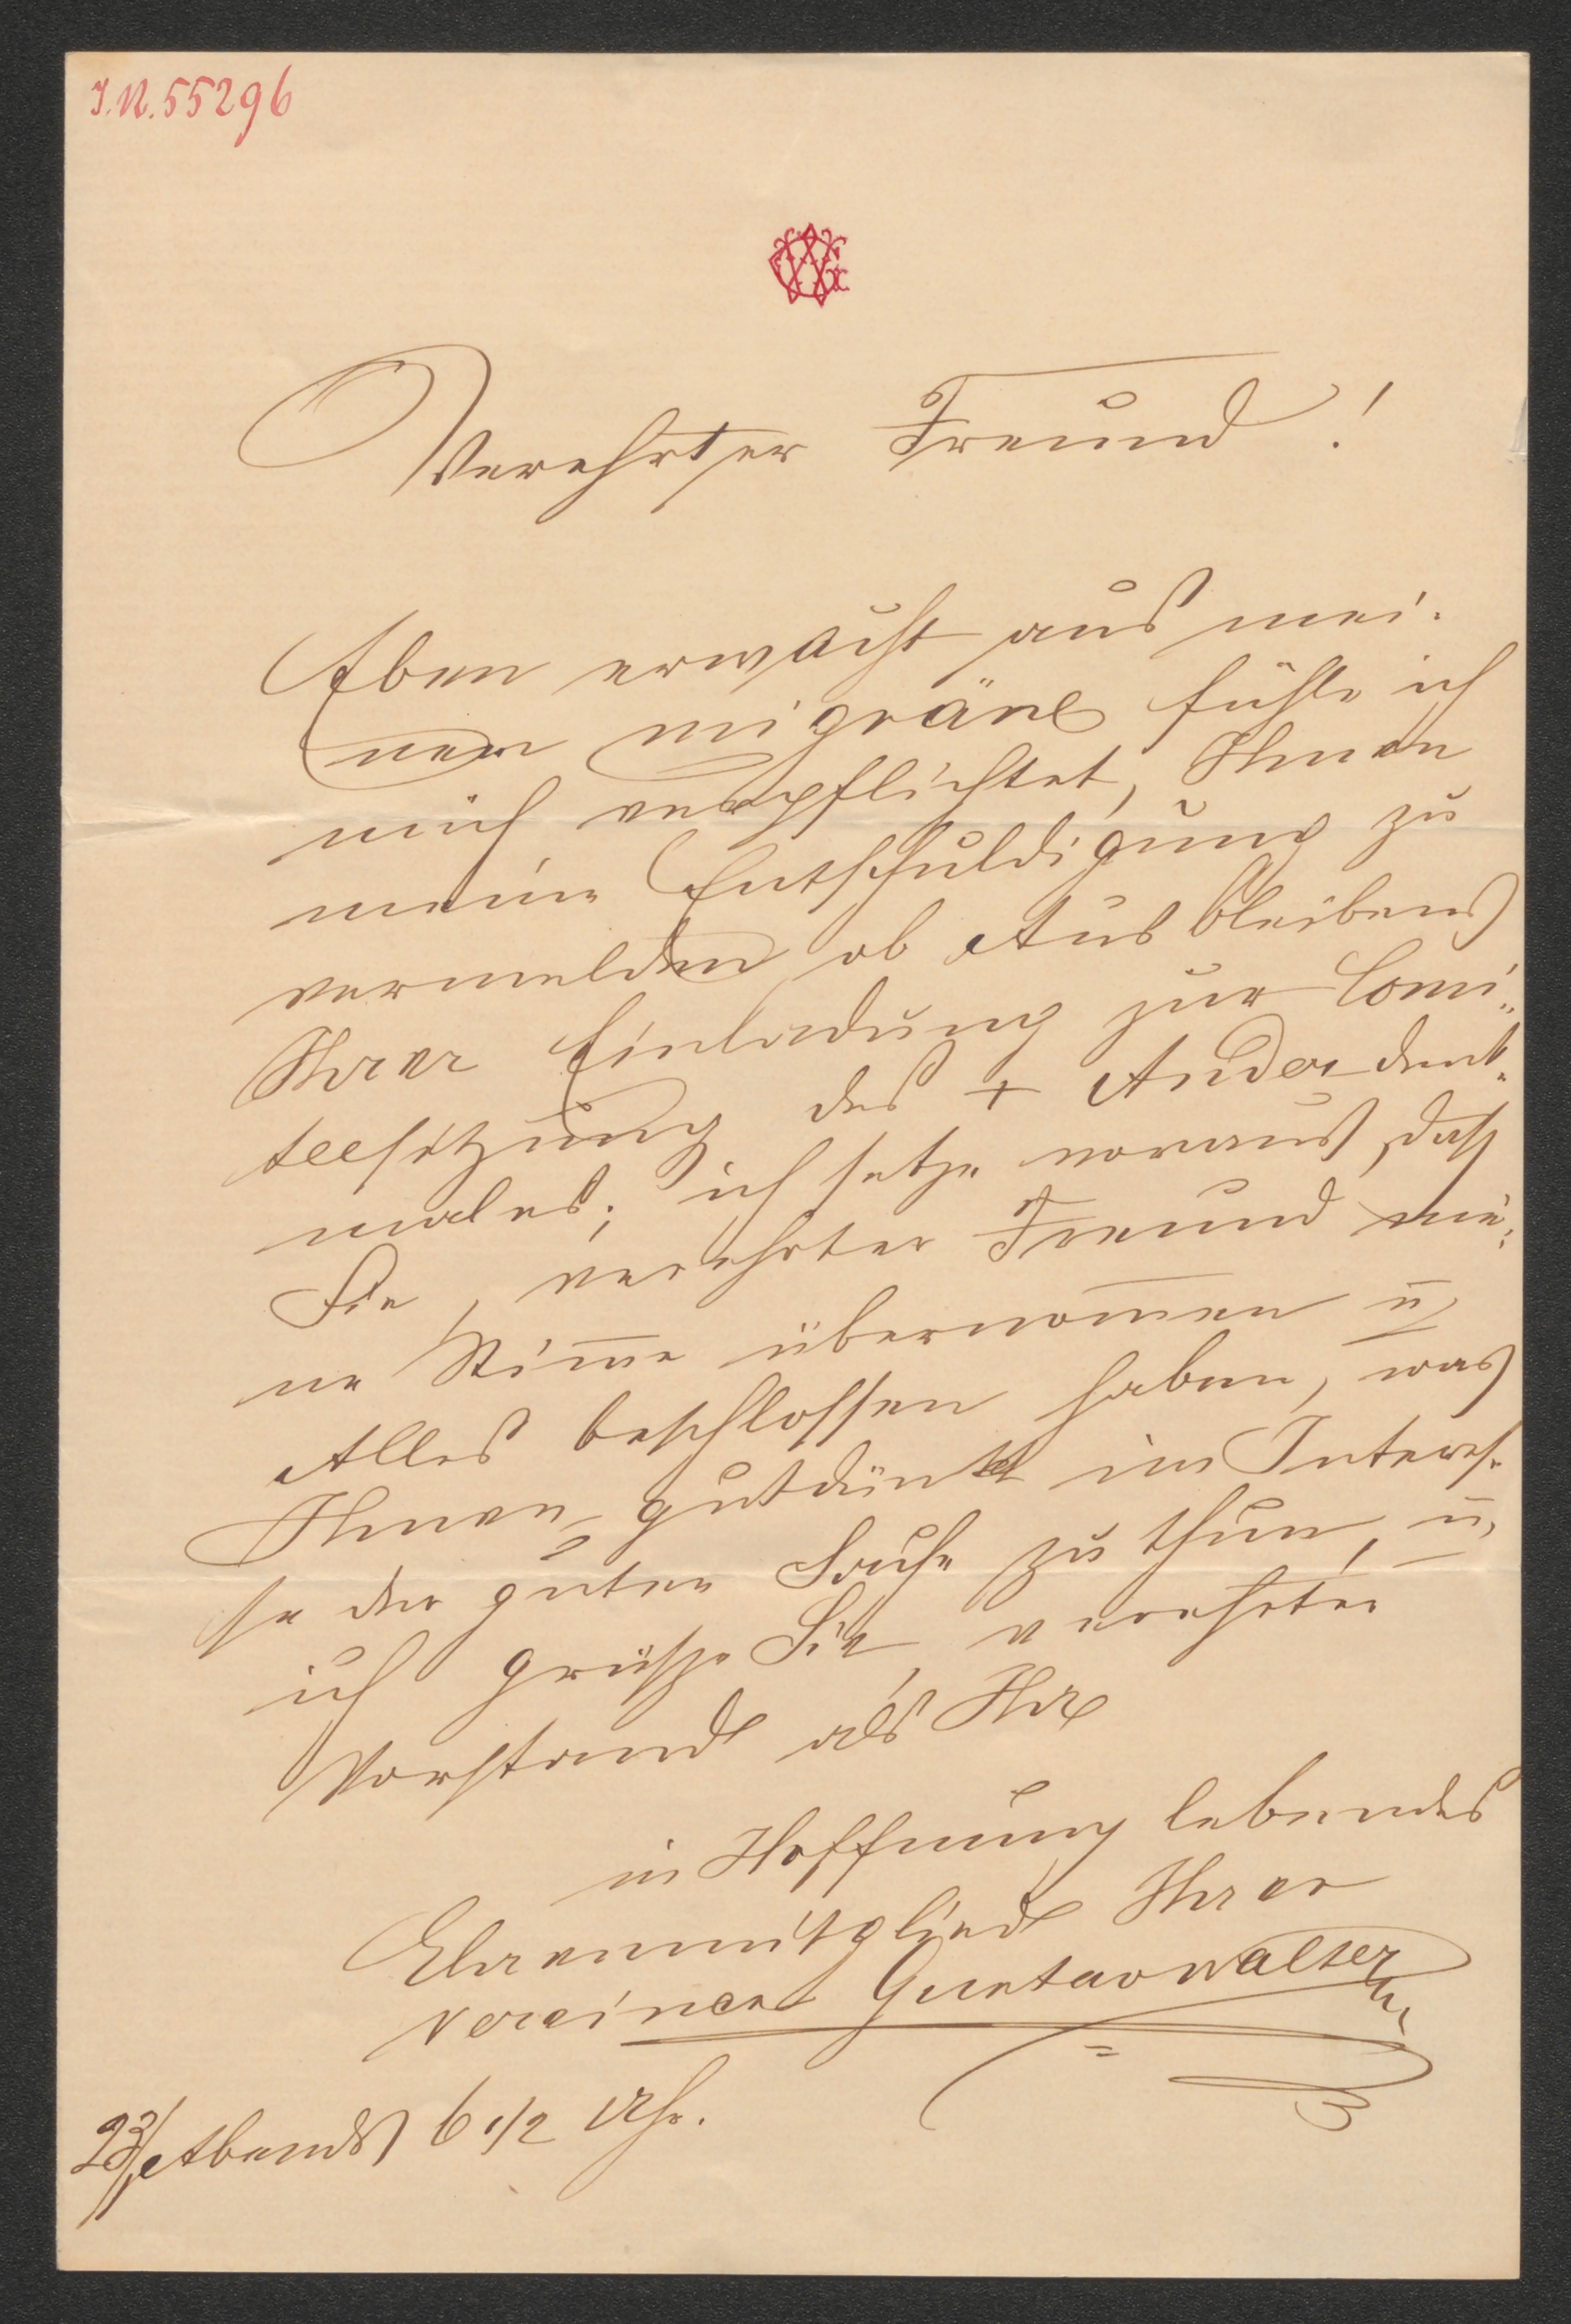 I.N. 55296
Verehrter Freund!
Eben erwacht aus mei-
ner migräne fühle ich
mich verpflichtet, Ihnen
meine Entschuldigung zu
vermelden ob Ausbleibens
Ihrer Einladung zur Comi-
teesitzung des + Ander denk-
males; ich setze voraus, daß
Sie, verehrter Freund mei-
ne Stim̅e übernom̅en u̅
Alles beschlossen haben, was
Ihnen gutdünkt im Interes-
se der guten Sache zu thun, u̅,
ich grüße Sie, verehrter
Vorstand als Ihr
in Hoffnung lebendes
Ehrenmitglied Ihrer
Vereines Gustav Walter
23/ Abends 6 1/2 Uhr.